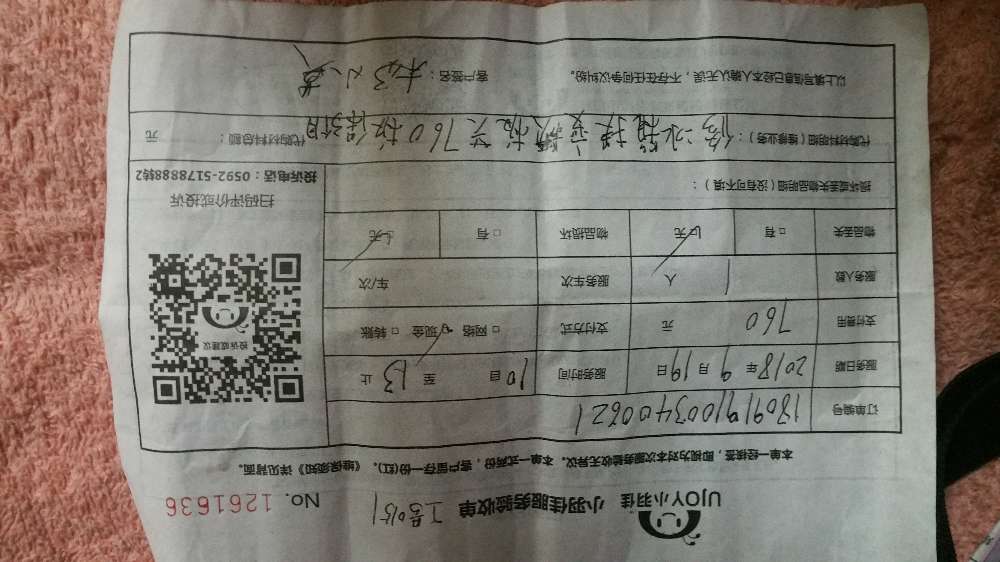 UJOY小羽佳 小羽佳服务验收单 No. 1261636
本单一经核签，即视为对本次服务验收无异议。本单一式两份，客户留存一份(红)。《维保须知》详见背面。
订单编号 1809191003400621
服务日期 2018年9月19日 服务时间 10自 至13止
支付费用 760元 支付方式 □网络 □现金 □转账
服务人数 1人 服务车次 车/次
物品丢失 □有 □无 物品损坏 □有 □无
损坏或丢失物品明细（没有可不填）：
代购材料明细（维修业务）：修冰箱换变频板共760板保3个月 代购材料总额： 元
以上填写信息已经本人确认无误，不存在任何争议纠纷。 客户签名：
投诉或建议
扫码评价或投诉
投诉电话：0592-5178888转2